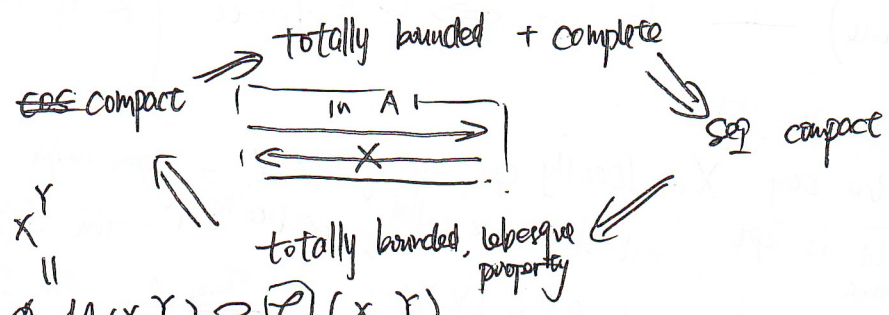 totally bounded + complete
compact
in A
seq compact
totally bounded, Lebesgue
property
X^Y
||
(X, Y)